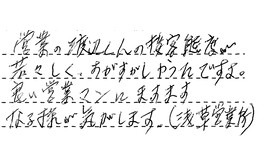 営業の渡辺くんの接客態度が
若々しく、すがすがしかったですよ。
良い営業マンにますます
なる様が気がします。(浅草営業所)